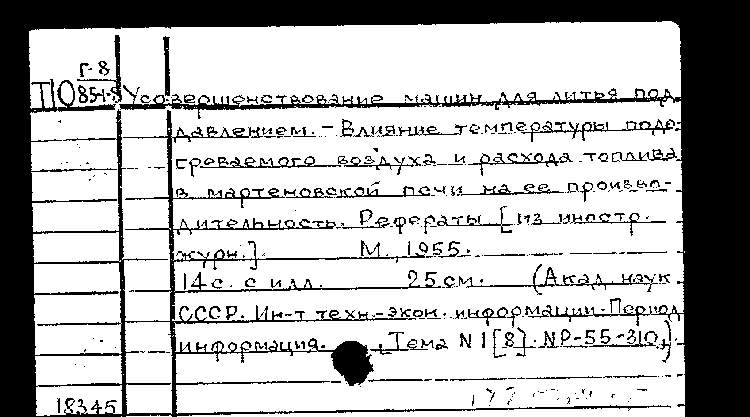 Г-8
П10 854-8 Усовершенствование машин для литья под
давлением. - Влияние температуры подо-
греваемого воздуха и расхода топлива
в мартеновской печи на ее произво-
дительность. Рефераты [из иностр.
журн.]. М., 1955.
14 с. с илл. 25 см. (Акад. наук
СССР. Ин-т техн.-экон. информации. Период
информация. Тема N 1[8]. NP-55-310.)
18345